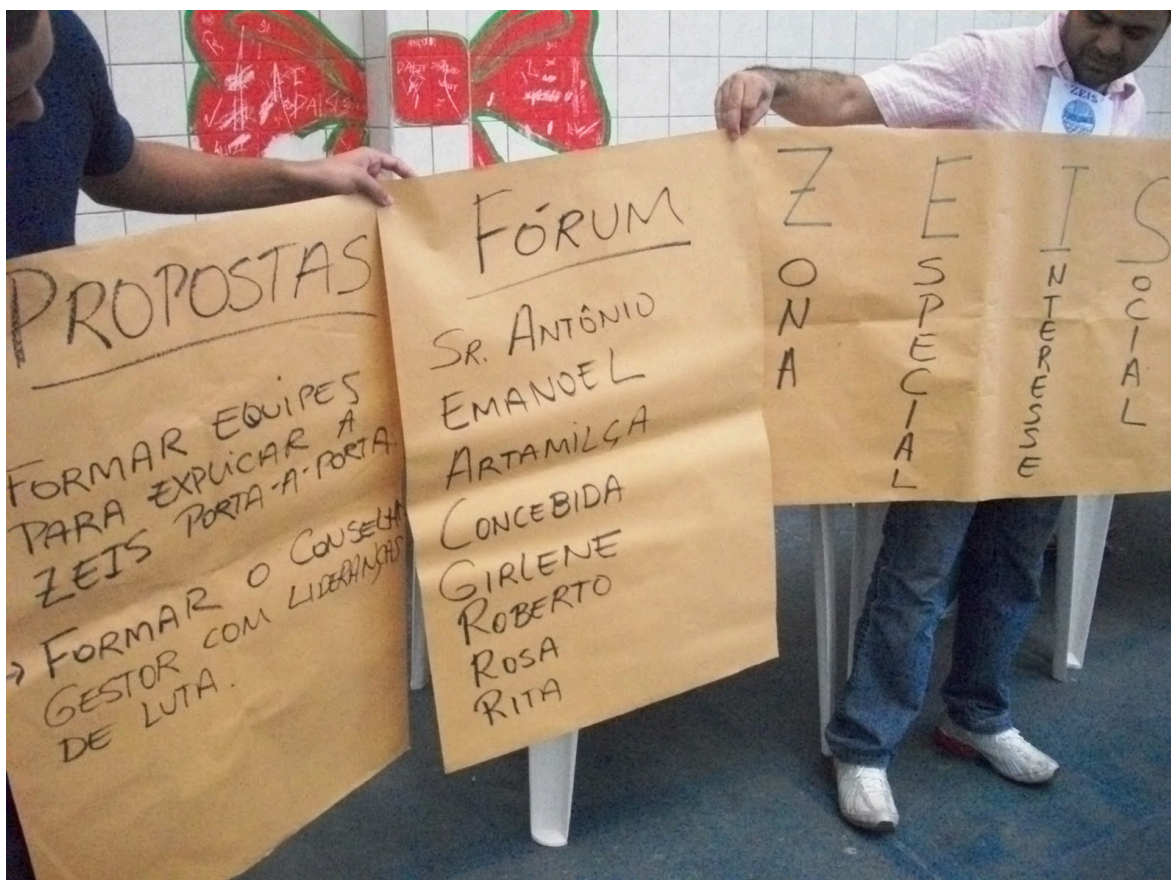 PROPOSTAS
FORMAR EQUIPES
PARA EXPLICAR A
ZEIS PORTA-A-PORTA.
→ FORMAR O CONSELH
GESTOR COM LIDERANÇAS
DE LUTA.
FÓRUM
SR. ANTÔNIO
EMANOEL
ARTAMILÇA
CONCEBIDA
GIRLENE
ROBERTO
ROSA
RITA
ZONA
ESPECIAL
INTERESSE
SOCIAL
ZEIS